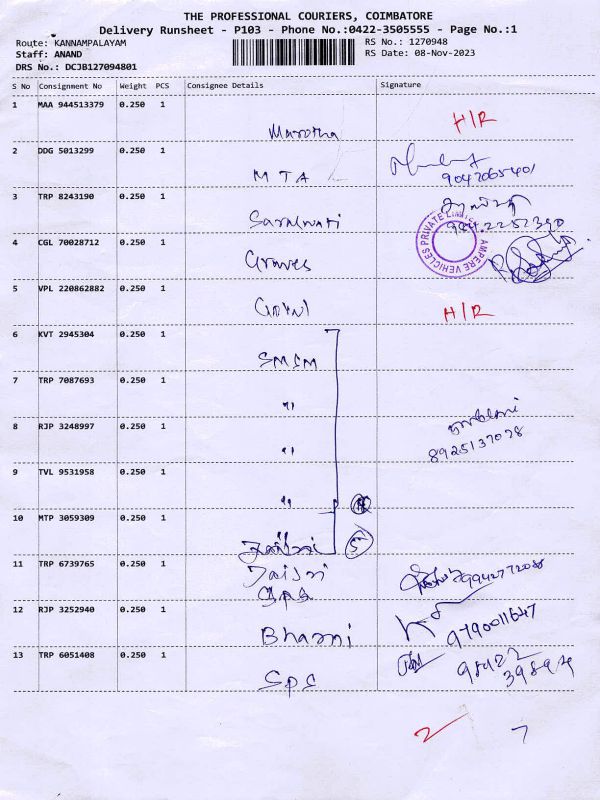 THE PROFESSIONAL COURIERS, COIMBATORE
Delivery Runsheet - P103 - Phone No.:0422-3505555 - Page No.:1
Route: KANNAMPALAYAM
RS No.: 1270948
Staff: ANAND
RS Date: 08-Nov-2023
DRS No.: DCJB127094801
S No Consignment No Weight PCS Consignee Details Signature
1 MAA 944513379 0.250 1
H/R
2 DDG 5013299 0.250 1
MTA
9042065401
3 TRP 8243190 0.250 1
Saraswati
PRIVATE LIMITED AMPERE VEHICLES
4 CGL 70028712 0.250 1
Graves
5 VPL 220862882 0.250 1
Gokul H/R
6 KVT 2945304 0.250 1
SMSM
7 TRP 7087693 0.250 1
"
8 RJP 3248997 0.250 1
" 8925137098
9 TVL 9531958 0.250 1
"
10 MTP 3059309 0.250 1
5
11 TRP 6739765 0.250 1
Jaisri
12 RJP 3252940 0.250 1
Bharni 9790011647
13 TRP 6051408 0.250 1
SPS
2 7